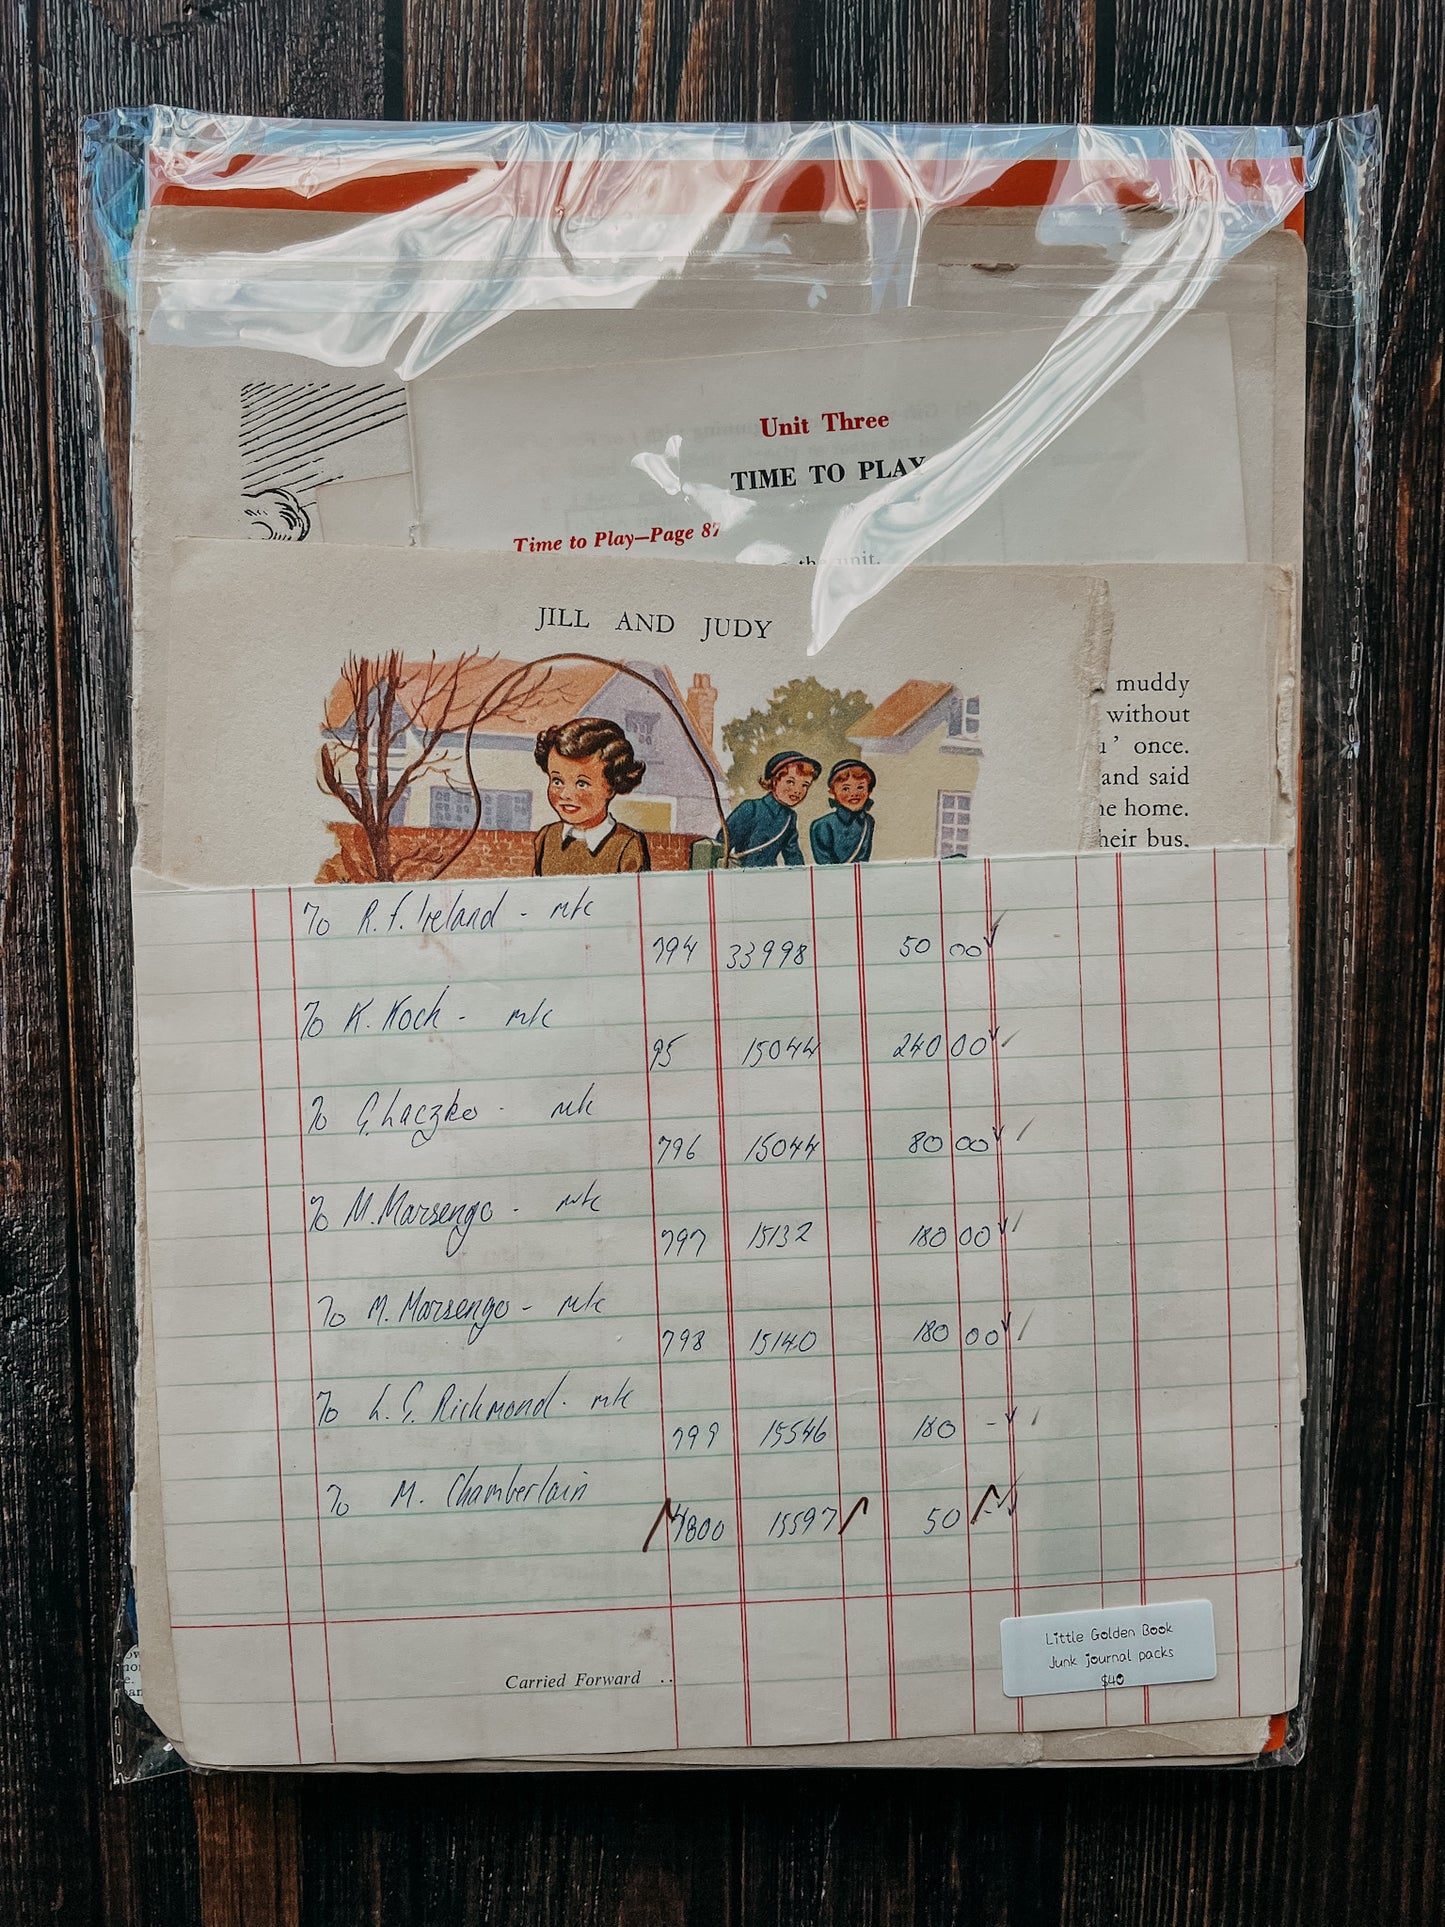 Unit Three
TIME TO PLAY
Time to Play—Page 87
the unit.
JILL AND JUDY
muddy
without
u’ once.
and said
ne home.
heir bus,
To R. F. Ireland - mtc
794 33998 50 00
To K. Koch - mtc
95 15044 240 00
To G. Laczko - mtc
796 15044 80 00
To M. Marsengo - mtc
797 15132 180 00
To M. Marsengo - mtc
798 15140 180 00
To L. G. Richmond - mtc
799 15546 180 -
To M. Chamberlain
800 15597 50 -
Carried Forward ..
Little Golden Book
Junk journal packs
$40